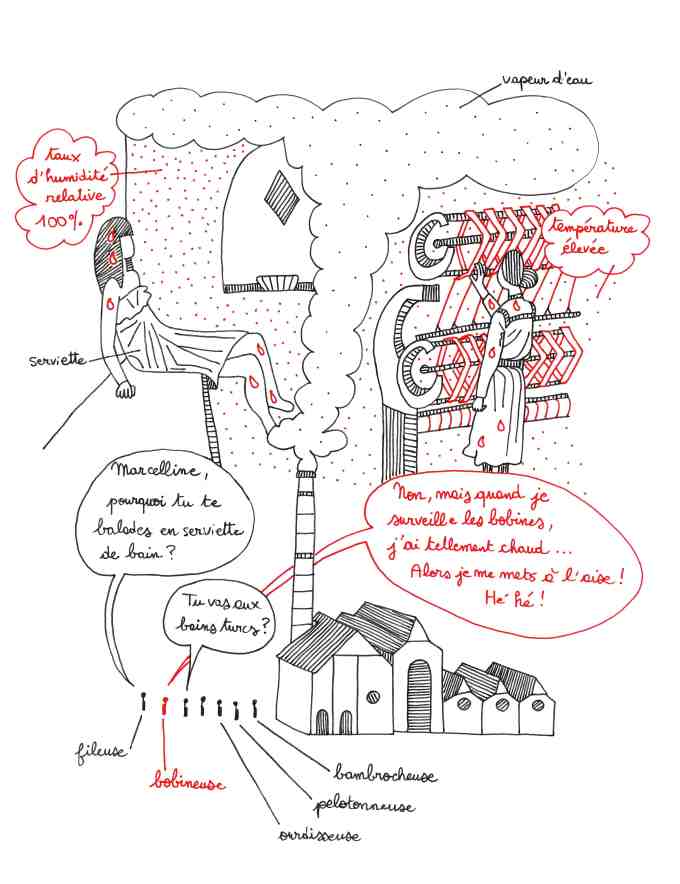 vapeur d'eau
taux
d'humidité
relative
100%
température
élevée
serviette
Marcelline,
pourquoi tu te
balades en serviette
de bain ?
Non, mais quand je
surveille les bobines,
j'ai tellement chaud ...
Alors je me mets à l'aise !
Hé hé !
Tu vas aux
bains turcs ?
fileuse
bobineuse
bambrocheuse
pelotonneuse
ourdisseuse